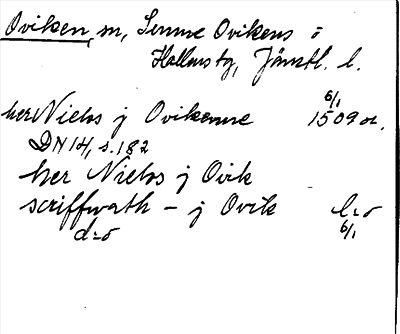 Oviken, m, Sunne Ovikens o
Hallens tg, Jämtl. l.
her Nielss j Ovikenne 6/1 1509 or.
DN 14, s. 182
her Nielss j Ovik
scriffwath - j Ovik l=o
d=o 6/1